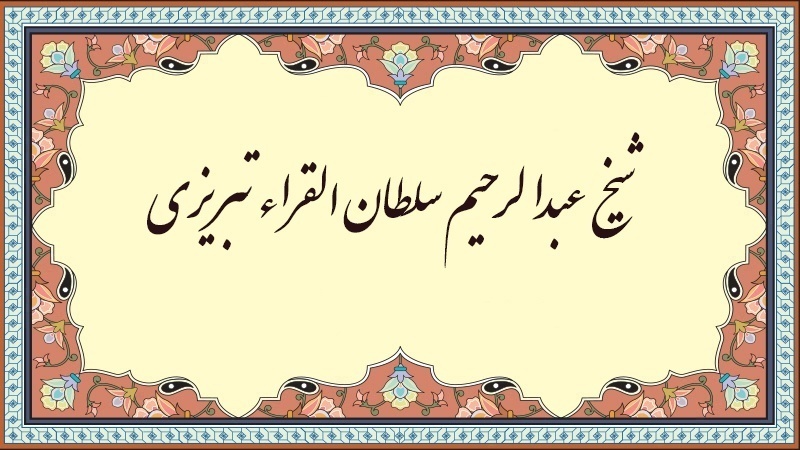 شیخ عبدالرحیم سلطان القراء تبریزی